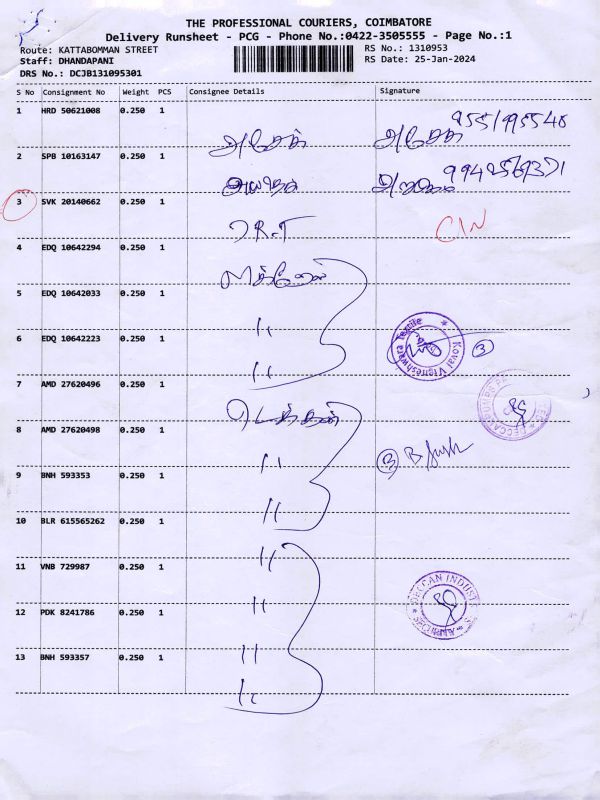 THE PROFESSIONAL COURIERS, COIMBATORE
Delivery Runsheet - PCG - Phone No.:0422-3505555 - Page No.:1
Route: KATTABOMMAN STREET
RS No.: 1310953
Staff: DHANDAPANI
RS Date: 25-Jan-2024
DRS No.: DCJB131095301
S No Consignment No Weight PCS Consignee Details Signature
1 HRD 50621008 0.250 1
அசோக் அசோக் 9551995548
2 SPB 10163147 0.250 1
9942569371
3 SVK 20140662 0.250 1
J R.T CIN
4 EDQ 10642294 0.250 1
5 EDQ 10642033 0.250 1
"
6 EDQ 10642223 0.250 1
"
Kovai Vigneshwara Textile
3
7 AMD 27620496 0.250 1
8 AMD 27620498 0.250 1
"
3 B
9 BNH 593353 0.250 1
"
10 BLR 615565262 0.250 1
"
11 VNB 729987 0.250 1
"
DECCAN INDUST
SECURITY
12 PDK 8241786 0.250 1
"
13 BNH 593357 0.250 1
"